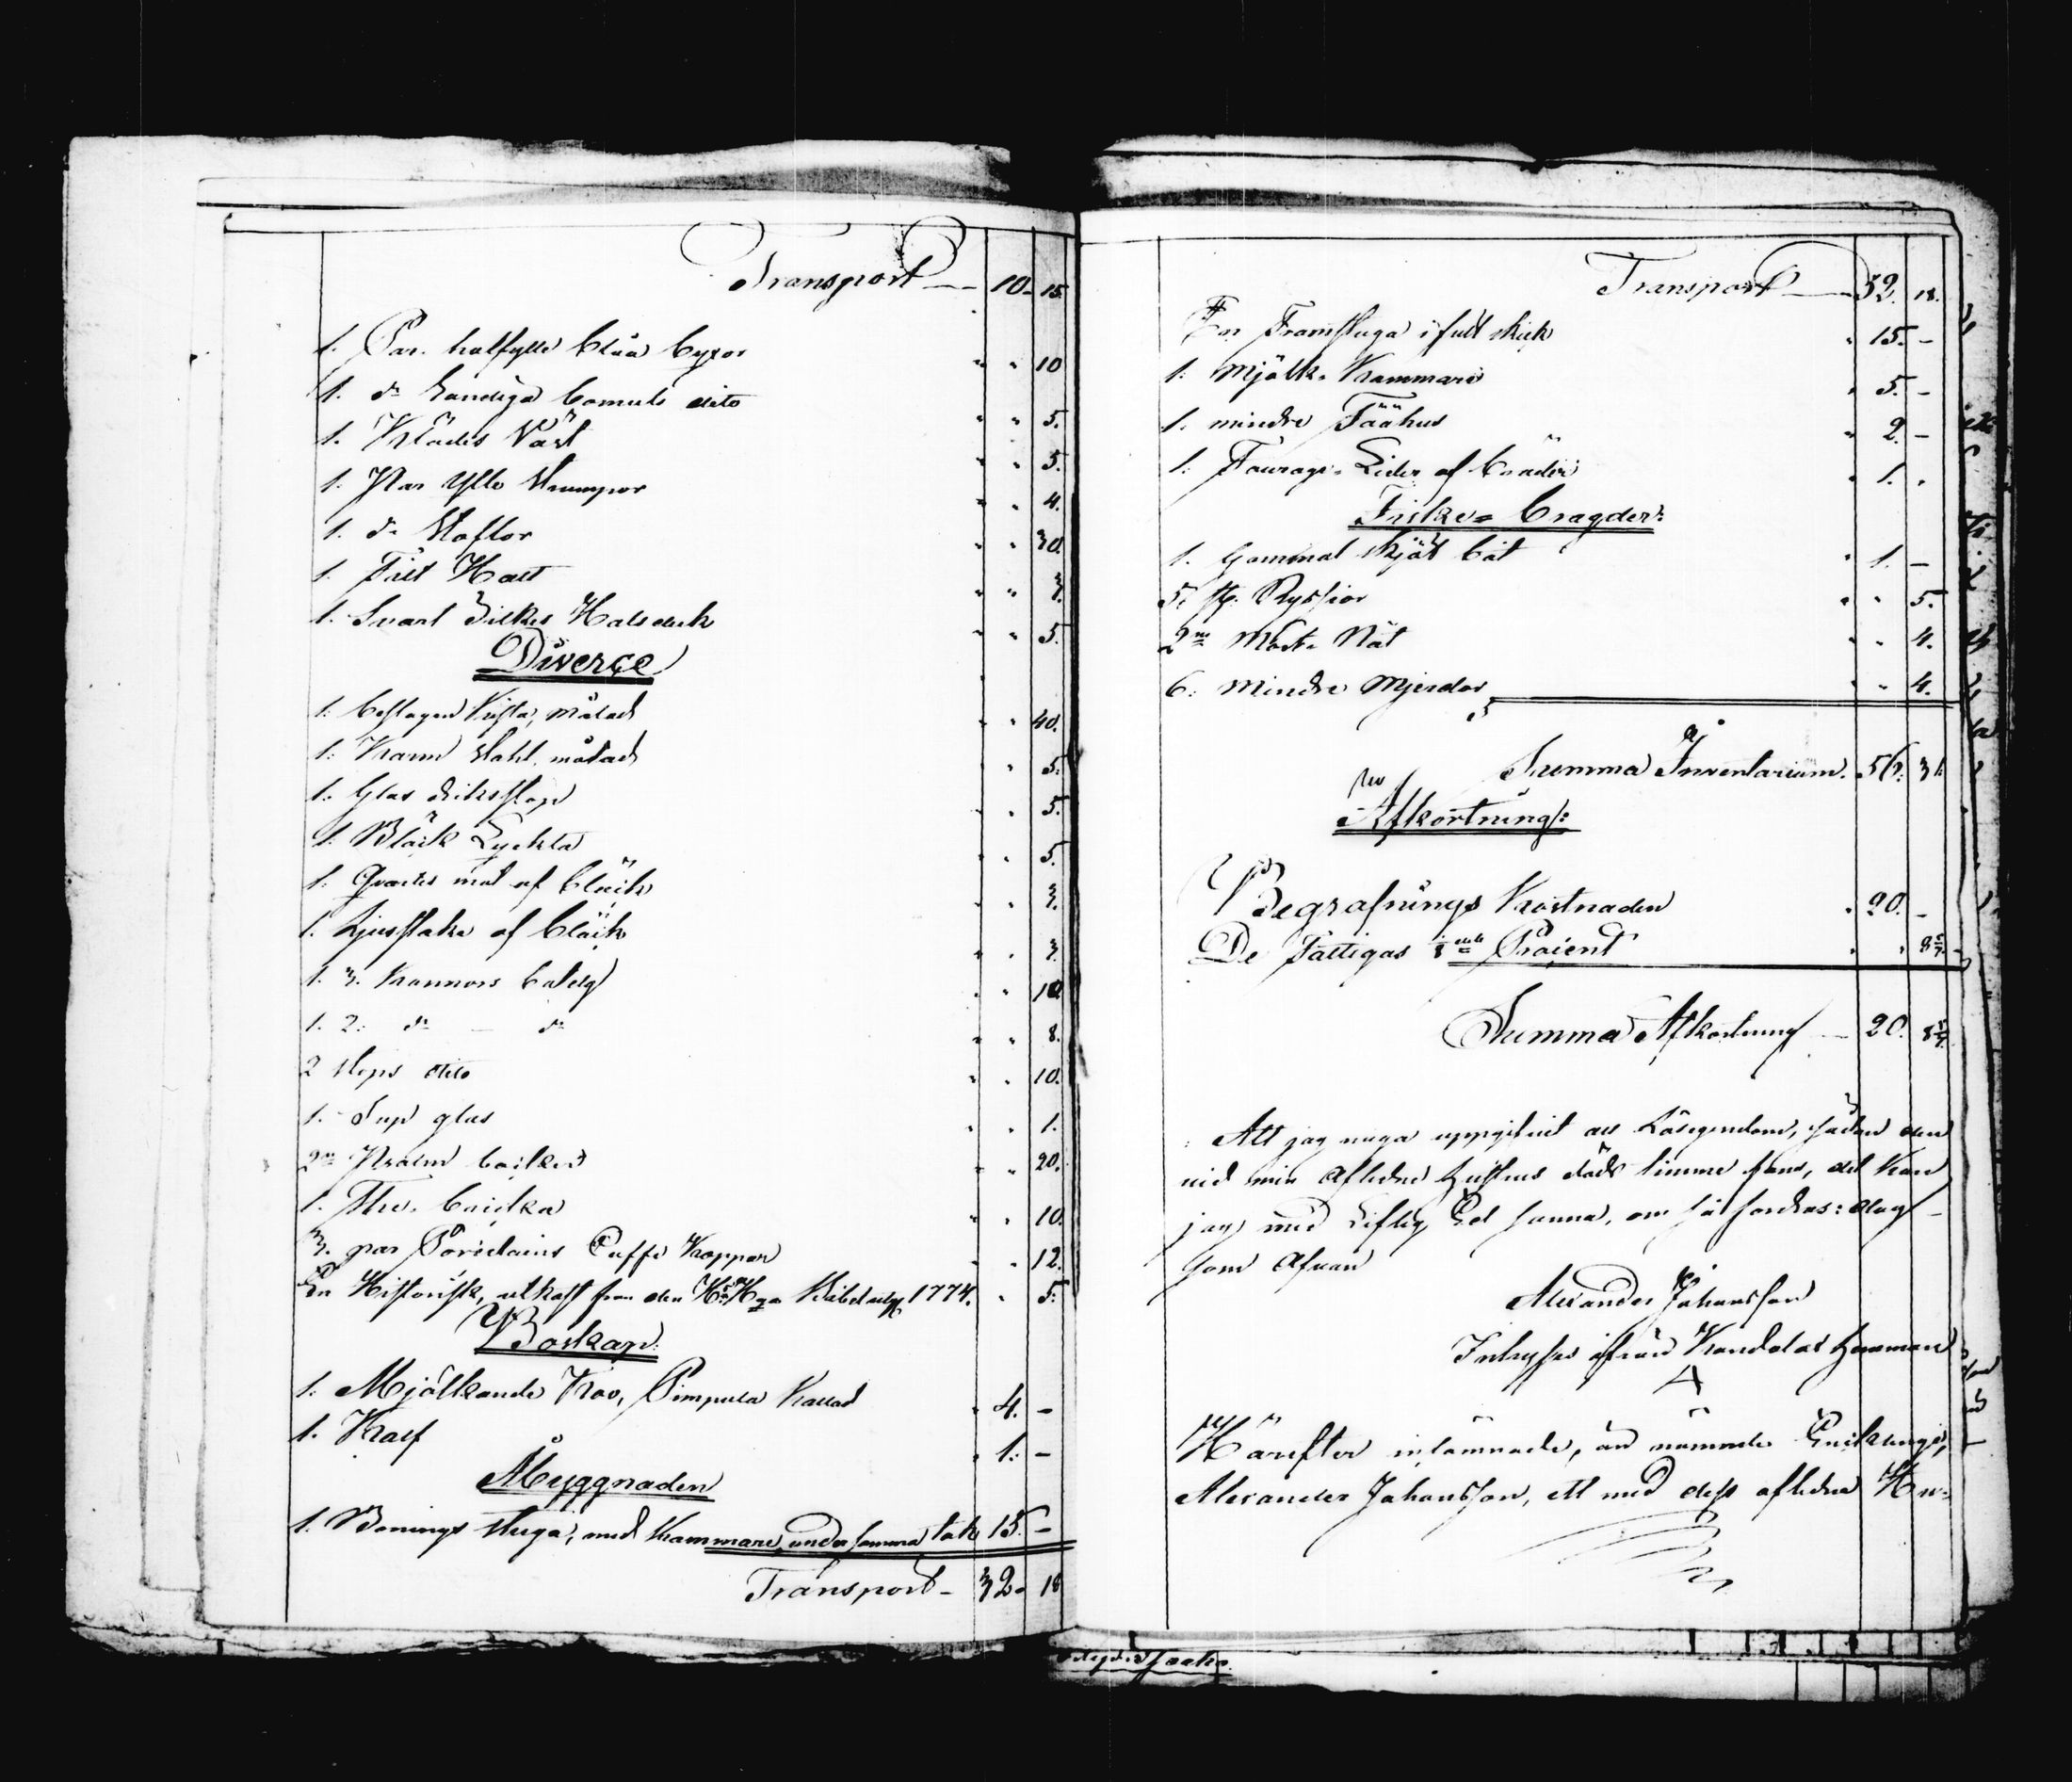 Transport — 10 - 15.
1. Par. halfylle blåa byxor " " 10
1. do Randiga bomuls dito " " 5.
1. Klädes Väst " " 5.
1. Par Ylle Strumpor " " 4.
1. do Stöflor " " 30.
1. Filt Hatt " " 3.
1. Svart Silkes Halsduk " " 5.
Diverçe
1. beslagen Kista, målad " " 40.
1. Karm Stohl, målad " 5.
1. Glas 5.
1. Bläck Lyckta " " 5.
1. Qvarters mål af bläck " " 3.
1. Ljusstake af bläck " . 3.
1. 3. Kannors " " 10.
1. 2: do — do " " 8.
2 Stops dito " " 10.
1. Sup glas " " 1.
2ne " " 20.
1. Thee bricka " " 10.
3. par Porselains Caffe Koppar " " 12.
En Historisk, utkast från den 1774. " 5.
Boskap:
1. Mjölkande Koo, Kallad " 4. -
1. Kalf " 1. -
Åbyggnaden
1. Bonings Stuga, med Kammare, under samma tak 15. -
Transport - 32 - 18
Transport — 32. 18.
En Framstuga i fult skick " 15. -
1: Mjölk- Kammare " 5. -
1. mindre Fäähus " 2. -
1. Fourage- Lider af bräder " 1. "
Fiske= bragder:
1. Gammal skjöt båt " 1. -
5. st. Ryssior " " 5.
2ne Nät " " 4.
6: mindre Mjerdor " " 4.
Summa Inventarium. 56. 31.
Afkortning:
Begrafnings Kostnaden " 20. -
De Fattigas Procent " "
Summa Afkortning — 20.
Att jag noga uppgifvit all Lösegendom, sådan den
vid min Aflidne Hustrus döds timme fans, det kan
jag med Liflig Ed sanna, om så fordras: dag
som Ofvan
Alexander Johansson
Inhyses ifrån Hemman
Härefter inlämnade, än nämnde Enklinge,
Alexander Johansson, ett med dess aflidna Hu=